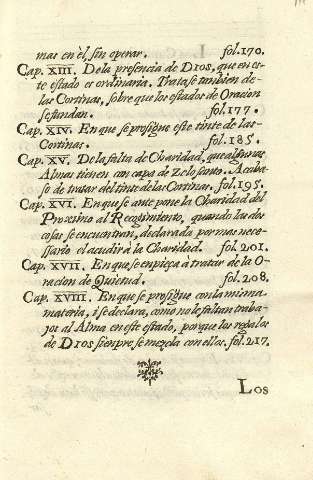 mas en èl, sin operar. fol.170.
Cap. XIII. De la presencia de DIOS, que en es-
te estado es ordinaria. Tratase tambien de-
las Cortinas, sobre que los estados de Oracion
se fundan. fol.177.
Cap. XIV. En que se prosigue este tinte de las-
Cortinas. fol.185.
Cap. XV. De la falta de Charidad, que algunas
Almas tienen con capa de Zelo santo. Acaba-
se de tratar del tinte de las Cortinas. fol.195.
Cap. XVI. En que se ante pone la Charidad del
Proximo al Recogimiento, quando las dos
cosas se encuentran, declarada por mas nece-
ssario el acudir à la Charidad. fol.201.
Cap. XVII. En que se enpieça à tratar de la O-
racion de Quietud. fol.208.
Cap. XVIII. En que se prosigue con la misma
materia, i se declara, como no le faltan traba-
jos al Alma en este estado, porque los regalos
de DIOS sienpre se mezcla con ellos. fol.217.
LOS